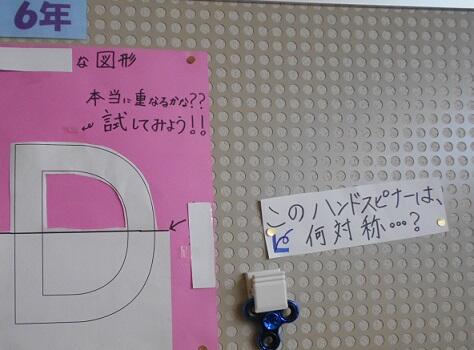 6年
な図形
本当に重なるかな??
試してみよう!!
D
このハンドスピナーは、
何対称…?